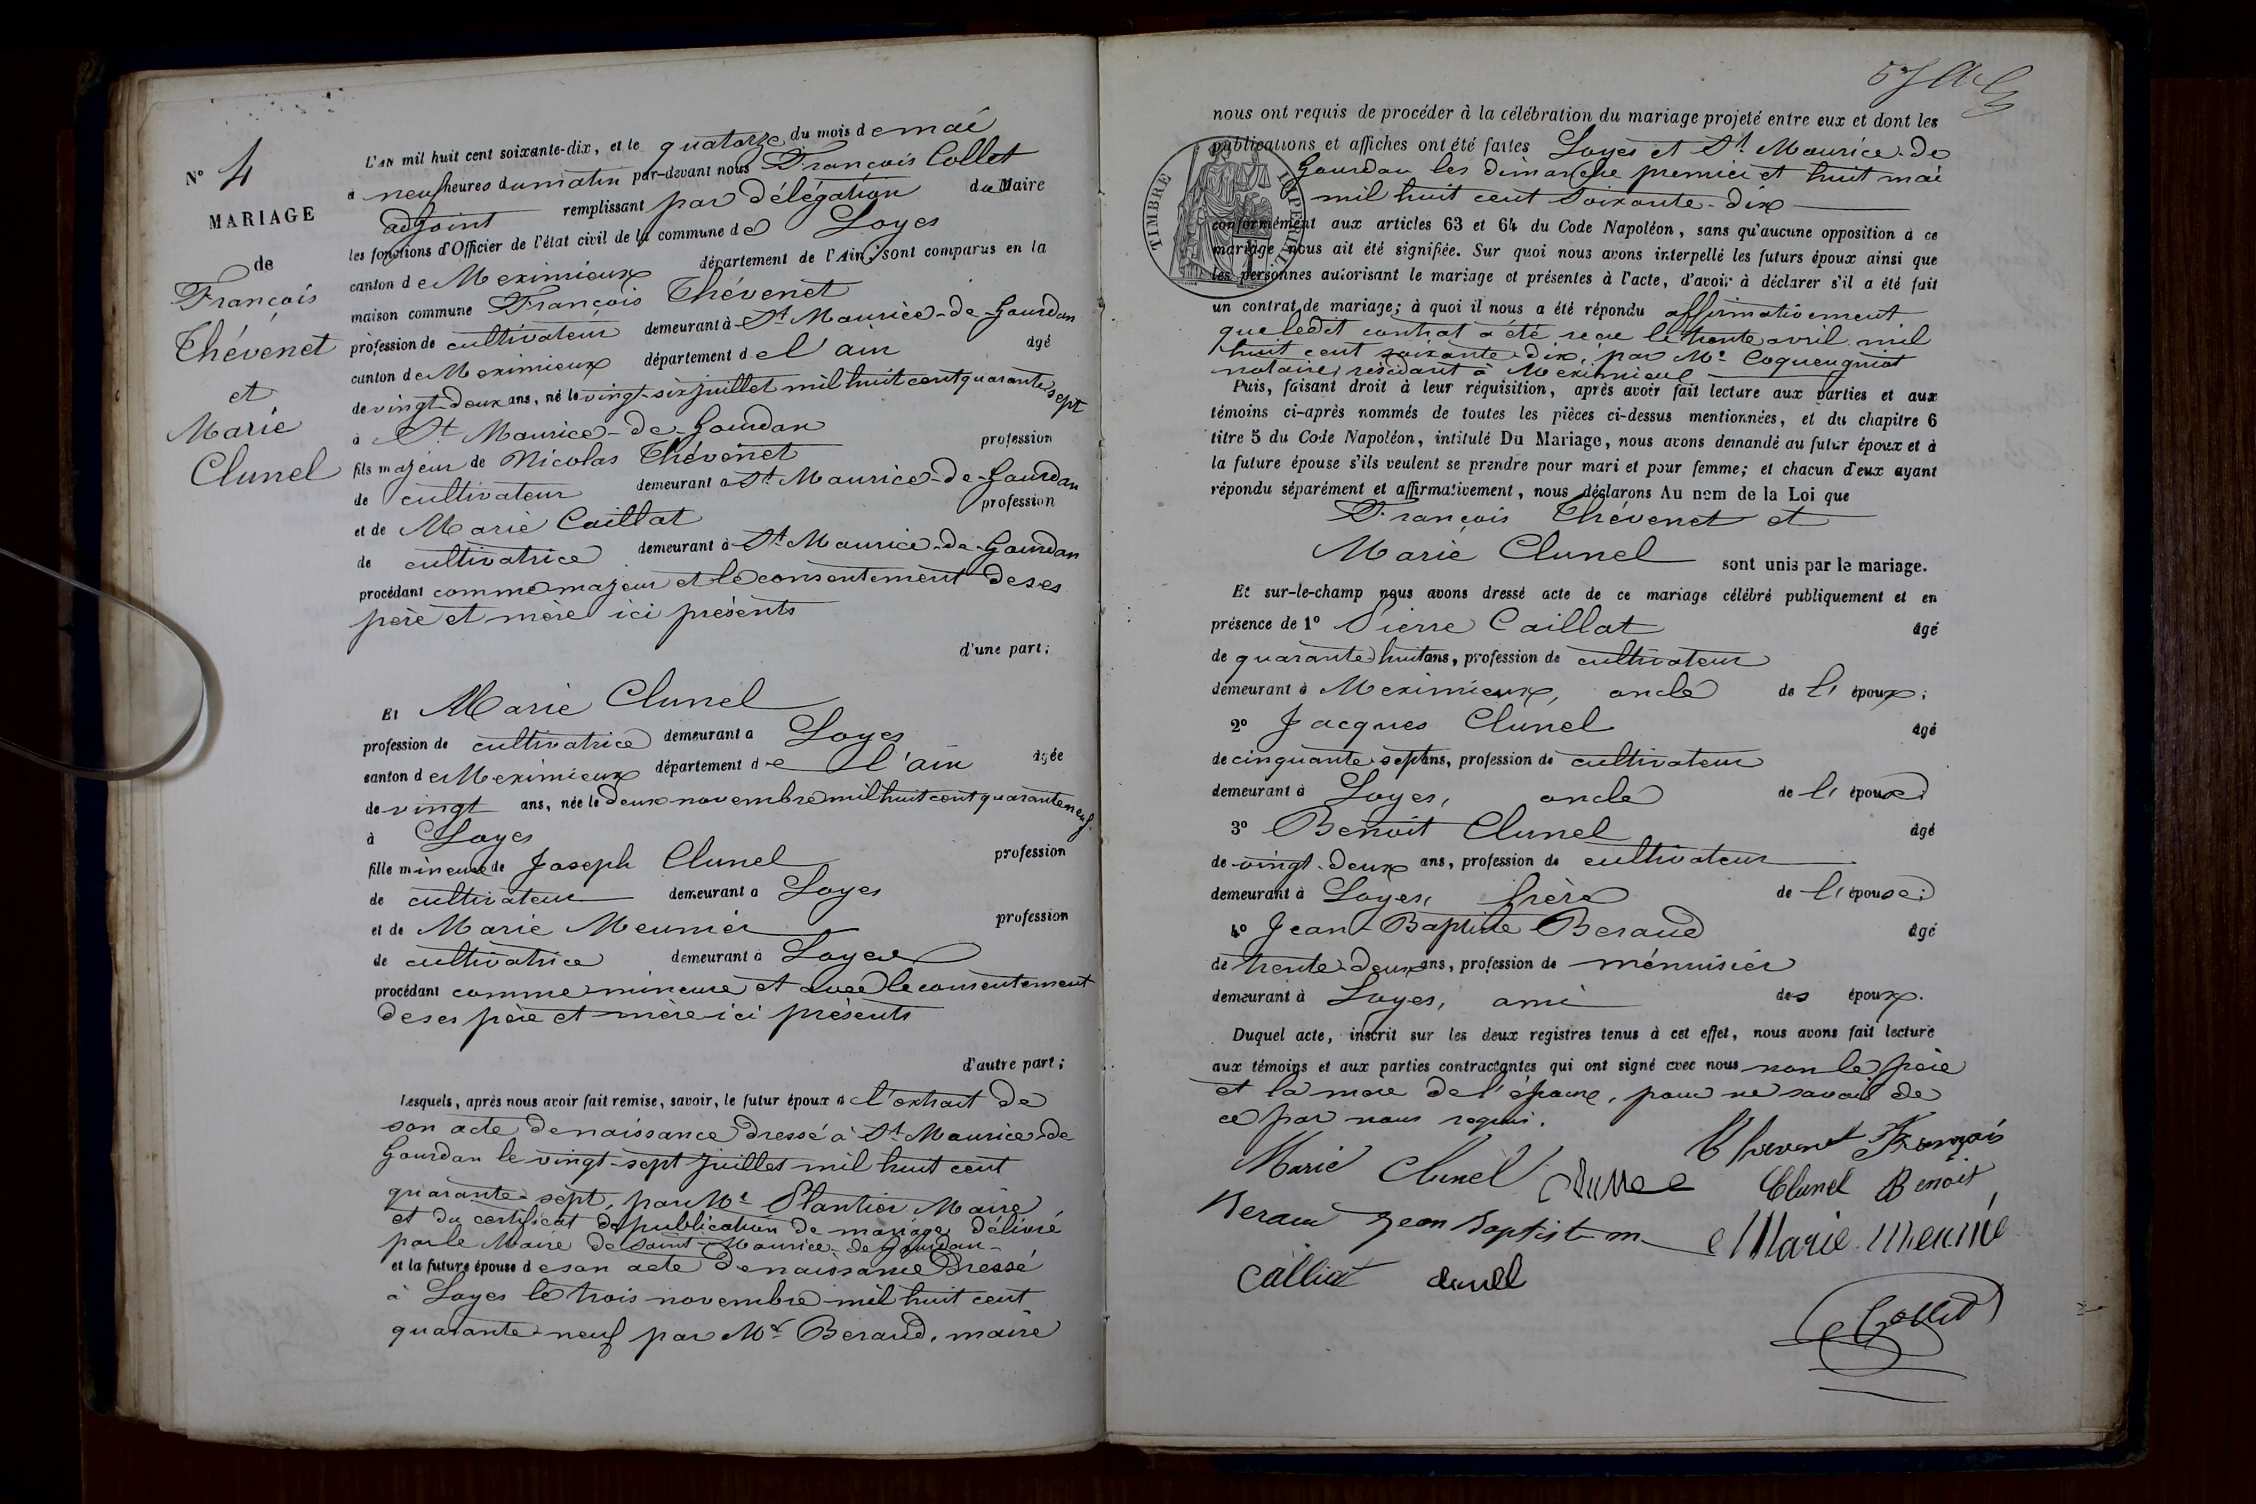 N° 4
MARIAGE
de
François
Thévenet
et
Marie
Clunel
L'AN mil huit cent soixante-dix, et le quatorze du mois de mai
à neuf heures du matin par-devant nous François Collet
adjoint remplissant par délégation du Maire
les fonctions d'Officier de l'état civil de la commune de Loyes
canton de Meximieux département de l'Ain, sont comparus en la
maison commune François Thévenet
profession de cultivateur demeurant à St Maurice-de-Gourdan
canton de Meximieux département de l'ain âgé
de vingt-deux ans, né le vingt-six juillet mil huit cent quarante sept
à St Maurice-de-Gourdan
fils majeur de Nicolas Thévenet profession
de cultivateur demeurant à St Maurice-de-Gourdan
et de Marie Caillat profession
de cultivatrice demeurant à St Maurice-de-Gourdan
procédant comme majeur et le consentement de ses
père et mère ici présents
d'une part;
Et Marie Clunel
profession de cultivatrice demeurant à Loyes
canton de Meximieux département de l'ain âgée
de vingt ans, née le deux novembre mil huit cent quarante neuf
à Loyes
fille mineure de Joseph Clunel profession
de cultivateur demeurant à Loyes
et de Marie Meunier profession
de cultivatrice demeurant à Loyes
procédant comme mineure et avec le consentement
de ses père et mère ici présents
d'autre part;
Lesquels, après nous avoir fait remise, savoir, le futur époux de l'extrait de
son acte de naissance dressé à St Maurice-de
Gourdan le vingt-sept juillet mil huit cent
quarante-sept, par Mr Plantier Maire
et du certificat de publication de mariage délivré
par le Maire de Saint-Maurice-de Gourdan-
et la future épouse de son acte de naissance dressé
à Loyes le trois novembre mil huit cent
quarante-neuf par Mr Beraud, maire
nous ont requis de procéder à la célébration du mariage projeté entre eux et dont les
publications et affiches ont été faites Loyes et St Maurice-de
Gourdan les dimanche premier et huit mai
mil huit cent soixante-dix
conformément aux articles 63 et 64 du Code Napoléon, sans qu'aucune opposition à ce
mariage nous ait été signifiée. Sur quoi nous avons interpellé les futurs époux ainsi que
les personnes autorisant le mariage et présentes à l'acte, d'avoir à déclarer s'il a été fait
un contrat de mariage; à quoi il nous a été répondu affirmativement
que ledit contrat a été reçu le trente avril mil
huit cent soixante-dix, par Me
notaire, résidant à Meximieux
Puis, faisant droit à leur réquisition, après avoir fait lecture aux parties et aux
témoins ci-après nommés de toutes les pièces ci-dessus mentionnées, et du chapitre 6
titre 5 du Code Napoléon, intitulé Du Mariage, nous avons demandé au futur époux et à
la future épouse s'ils veulent se prendre pour mari et pour femme; et chacun d'eux ayant
répondu séparément et affirmativement, nous déclarons Au nom de la Loi que
François Thévenet et
Marie Clunel sont unis par le mariage.
Et sur-le-champ nous avons dressé acte de ce mariage célébré publiquement et en
présence de 1° Pierre Caillat âgé
de quarante huit ans, profession de cultivateur
demeurant à Meximieux, oncle de l' époux;
2° Jacques Clunel âgé
de cinquante sept ans, profession de cultivateur
demeurant à Loyes, oncle de l' épouse;
3° Benoit Clunel âgé
de vingt-deux ans, profession de cultivateur
demeurant à Loyes, frère de l' épouse;
4° Jean-Baptiste Beraud âgé
de trente-deux ans, profession de ménuisier
demeurant à Loyes, ami des époux.
Duquel acte, inscrit sur les deux registres tenus à cet effet, nous avons fait lecture
aux témoins et aux parties contractantes qui ont signé avec nous non le père
et la mère de l'époux, pour ne savoir de
ce par nous requis.
TIMBRE IMPERIAL
Thevenet François
Marie Clunel
Clunel Benoit
Beraud Jean Baptiste
Marie Meunié
Calliat clunel
Collet